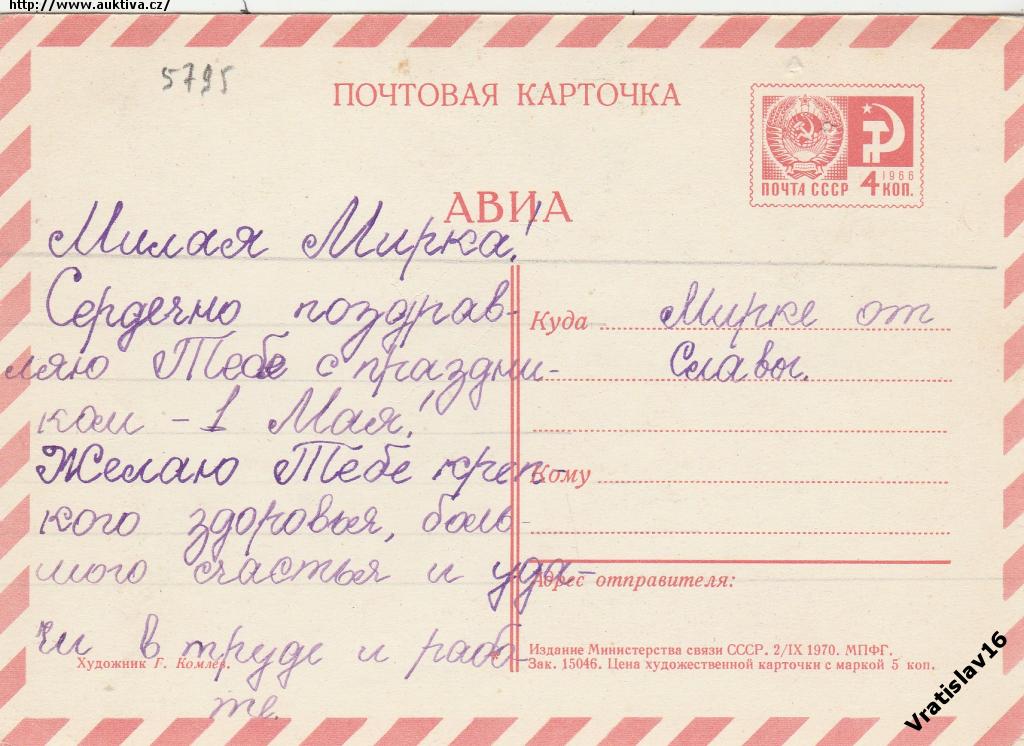 http://www.auktiva.cz/
5795
ПОЧТОВАЯ КАРТОЧКА
1966
ПОЧТА СССР 4 КОП.
АВИА
Милая Мирка!
Сердечно поздрав-
ляю Тебе с праздни-
ком - 1 Мая!
Желаю Тебе креп-
кого здоровья, боль-
шого счастья и уда-
чи в труде и рабо-
те.
Куда Мирке от
Славы.
Кому
Адрес отправителя:
Художник Г. Комлев.
Издание Министерства связи СССР. 2/IX 1970. МПФГ.
Зак. 15046. Цена художественной карточки с маркой 5 коп.
Vratislav16